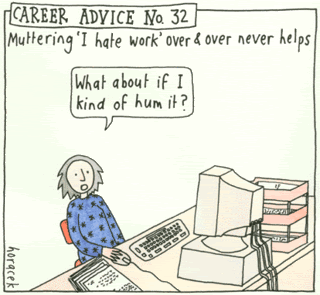 CAREER ADVICE No. 32
Muttering 'I hate work' over & over never helps
What about if I
kind of hum it?
horacek